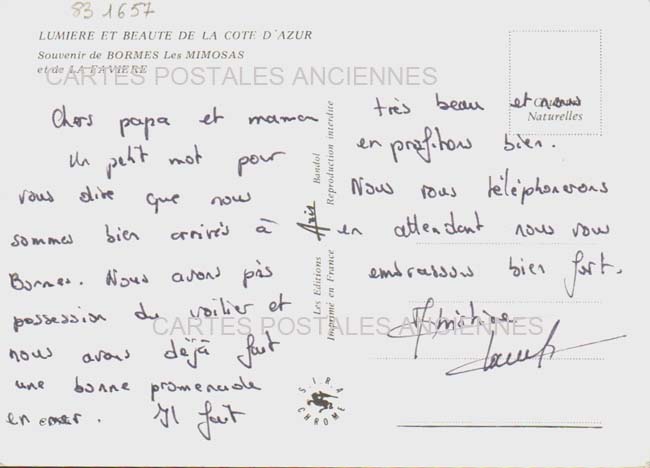 83 1657
LUMIERE ET BEAUTE DE LA COTE D'AZUR
Souvenir de BORMES Les MIMOSAS
et de LA FAVIERE
CARTES POSTALES ANCIENNES
Chers papa et maman
Un petit mot pour
vous dire que nous
sommes bien arrivés à
Bormes. Nous avons pris
possession du voilier et
nous avons déjà fait
une bonne promenade
en mer. Il fait
très beau et nous
en profitons bien.
Nous vous téléphonerons
en attendant nous vous
embrassons bien fort.
Christine
Naturelles
Les Editions Aris Bandol
Imprimé en France Reproduction interdite
CARTES POSTALES ANCIENNES
SIRA
CHROME